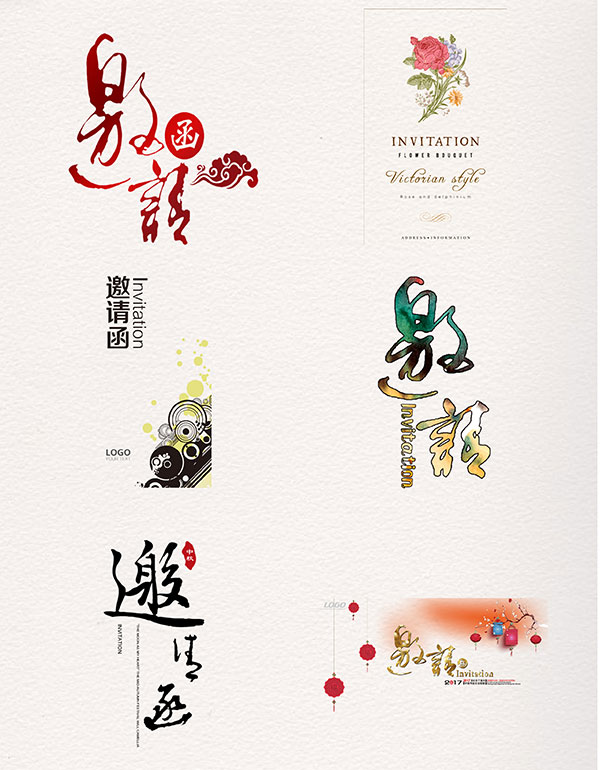 邀請
函
INVITATION
FLOWER BOUQUET
Victorian style
Rose and Delphinium
ADDRESS • INFORMATION
Invitation
邀请函
LOGO
邀請
Invitation
中秋
邀请函
INVITATION
LOGO
邀請
函
Invitation
2017